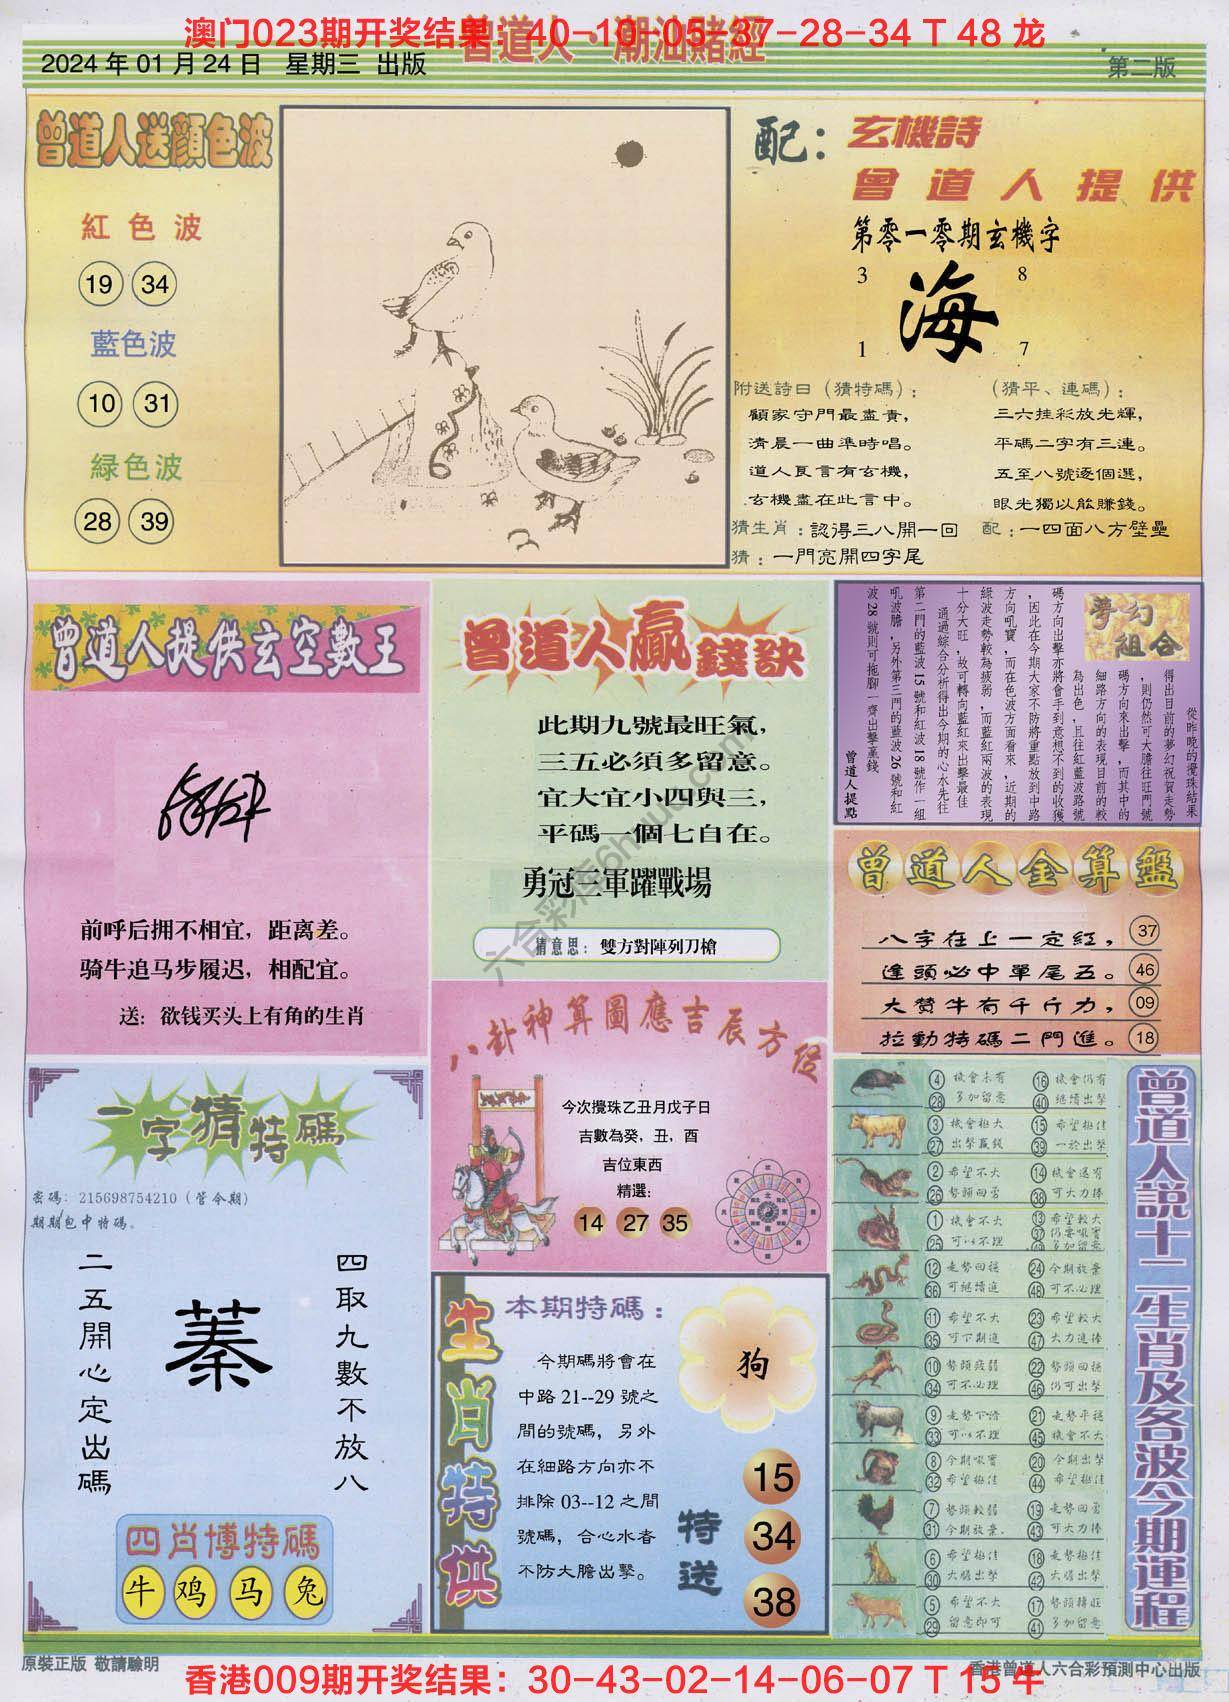 澳门023期开奖结果：40-10-05-37-28-34 T 48 龙
曾道人·潮汕賭經
2024 年 01 月 24 日 星期三 出版
第二版
曾道人送顏色波
紅色波
19 34
藍色波
10 31
緑色波
28 39
配：
玄機詩
曾道人提供
第零一零期玄機字
3 8
海
1 7
附送詩曰（猜特碼）：
顧家守門最盡責，
清晨一曲準時唱。
道人良言有玄機，
玄機盡在此言中。
（猜平、連碼）：
三六挂彩放光輝，
平碼二字有三連。
五至八號逐個選，
眼光獨以能賺錢。
猜生肖：認得三八開一回
配：一四面八方壁壘
猜：一門亮開四字尾
曾道人提供玄空數王
前呼后拥不相宜，距离差。
骑牛追马步履迟，相配宜。
送：欲钱买头上有角的生肖
曾道人贏錢訣
此期九號最旺氣，
三五必須多留意。
宜大宜小四與三，
平碼一個七自在。
勇冠三軍躍戰場
猜意思：雙方對陣列刀槍
夢幻組合
從昨晚的攪珠結果
得出目前的夢幻祝賀走勢
，則仍然可大膽往旺門號
碼方向來出擊，而其中的
細路方向的表現目前的較
為出色，且往紅藍波路號
碼方向出擊亦將會手到意想不到的收獲
，因此在今期大家不防將重點放到中路
方向吼寶，而在色波方面看來，近期的
綠波走勢較為疲弱，而藍紅兩波的表現
十分大旺，故可轉向藍紅來出擊最佳
通過綜合分析得出今期的心水先往
第二門的藍波 15 號和紅波 18 號作一組
吼波膽，另外第三門的藍波 26 號和紅
波 28 號則可拖腳一齊出擊贏錢
曾道人提點
曾道人金算盤
八字在上一定紅， 37
逢頭必中單尾五。 46
大贊牛有千斤力， 09
拉動特碼二門進。 18
八卦神算圖應吉辰方位
今次攪珠乙丑月戊子日
吉數為癸，丑，酉
吉位東西
精選：
14 27 35
一字猜特碼
密碼：215698754210（管今期）
期期包中特碼。
二五開心定出碼
蓁
四取九數不放八
四肖博特碼
牛 鸡 马 兔
生肖特供
本期特碼：
狗
今期碼將會在
中路 21--29 號之
間的號碼，另外
在細路方向亦不
排除 03--12 之間
號碼，合心水者
不防大膽出擊。
特送
15
34
38
曾道人説十二生肖及各波今期運程
4 機會未有 16 機會仍有
28 多加留意 40 繼續出擊
3 機會極大 15 希望極佳
27 出擊贏錢 39 一於出擊
2 希望不大 14 機會還有
26 勢頭回勇 38 可大力捧
1 機會不大 13 希望較大
25 可以不理 37 仍要吼寶
49 多加留意
12 走勢回穩 24 今期放棄
36 可繼續進 48 可不必理
11 希望不大 23 希望較大
35 可下期進 47 大力進捧
10 勢頭疲弱 22 勢頭回穩
34 可不必理 46 仍可出擊
9 走勢下滑 21 走勢平穩
33 可以不理 45 機會不大
8 今期吼寶 20 今期出擊
32 希望極佳 44 希望極佳
7 勢頭較弱 19 走勢回勇
31 今期放棄. 43 可大力捧
6 希望極佳 18 走勢極佳
30 大膽出擊 42 大膽出擊
5 希望不大 17 勢頭轉旺
29 留意即可 41 多加留意
原裝正版 敬請驗明
香港曾道人六合彩預測中心出版
香港009期开奖结果：30-43-02-14-06-07 T 15 牛